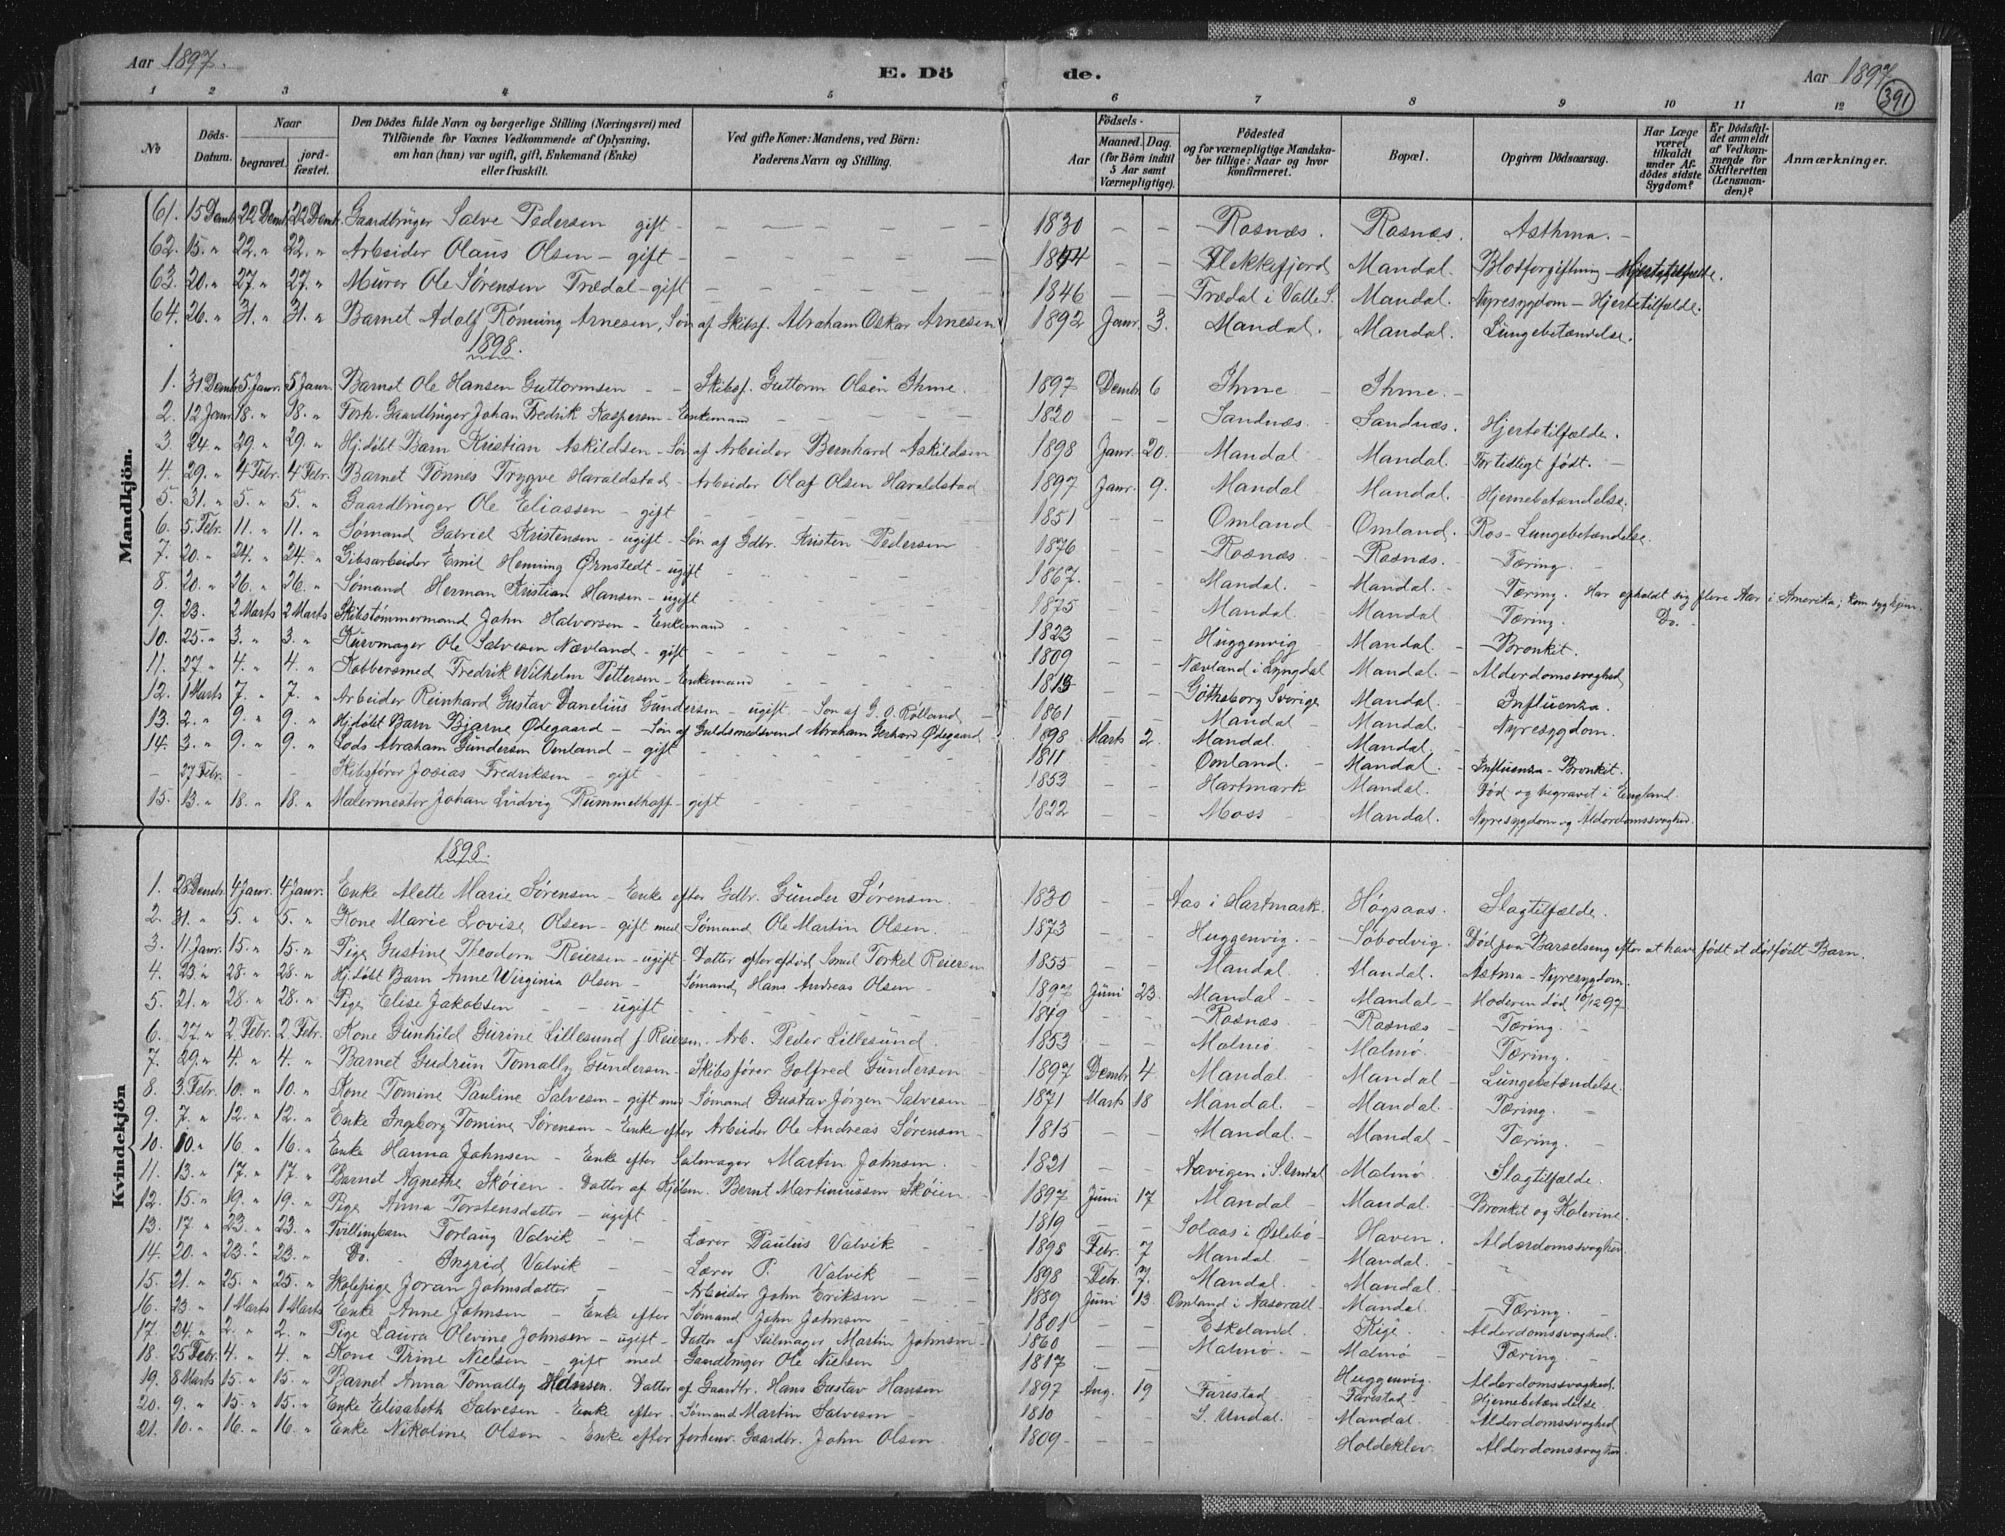 Aar 1897. E. Dö de. Aar 1897
391
1 2 3 4 5 6 7 8 9 10 11 12
No
Döds-Datum.
Naar
begravet. jordfæstet.
Den Dödes fulde Navn og borgerlige Stilling (Næringsvei) med
Tilföiende for Voxnes Vedkommende af Oplysning,
om han (hun) var ugift, gift, Enkemand (Enke)
eller fraskilt.
Ved gifte Koner: Mandens, ved Börn:
Faderens Navn og Stilling.
Födsels-
Aar Maaned. Dag.
(for Börn indtil 5 Aar samt Værnepligtige).
Födested
og for værnepligtige Mandskaber tillige: Naar og hvor konfirmeret.
Bopæl.
Opgiven Dödsaarsag.
Har Læge været tilkaldt under Afdödes sidste Sygdom?
Er Dödsfaldet anmeldt af Vedkommende for Skifteretten (Lensmanden)?
Anmærkninger.
Mandkjön.
61. 15 Demb. 22 Demb. 22 Demb. Gaardbruger Salve Pedersen gift - 1830 - - Rosnæs. Rosnæs. Asthma. -
62. 15. " 22. " 22. " Arbeider Olaus Olsen - gift - 1844 - - Flekkefjord Mandal. Blodforgiftning - Hjertetilfælde.
63. 20. " 27. " 27. " Murer Ole Sørensen Trædal - gift 1846 - - Trædal i Valle S. Mandal. Nyresygdom - Hjertetilfælde.
64. 26. " 31. " 31. " Barnet Adolf Rönning Arnesen, Søn af Skibsf. Abraham Oskar Arnesen 1892 Janr. 3. Mandal. Mandal. Lungebetændelse.
1898.
1. 31 Demb. 5 Janr. 5 Janr. Barnet Ole Hansen Guttormsen - - Skibsf. Guttorm Olsen Ihme. 1897 Dembr 6 Ihme - Ihme. -
2. 12 Janr. 18. " 18. " Forh. Gaardbruger Johan Fredrik Kaspersen - Enkemand 1820 - - Sandnæs. Sandnæs. Hjertetilfælde.
3 24 " 29 " 29. " Hj. døbt Barn Kristian Askildsen - Søn af Arbeider Bernhard Askildsen 1898 Janr. 20. Mandal Mandal. For tidligt født. -
4. 29. " 4 Febr. 4 Febr. Barnet Tönnes Trygve Haraldstad - Arbeider Olaf Olsen Haraldstad 1897 Janr. 9. Mandal Mandal. Hjernebetændelse.
5. 31. " 5. " 5. " Gaardbruger Ole Eliassen - gift 1851 - - Omland Omland. Ros - Lungebetændelse.
6. 5. Febr. 11. " 11. " Sømand Gabriel Kristensen - ugift - Søn af Gdbr. Kristen Pedersen 1876 - - Rosnæs. Rosnæs. Tæring. -
7. 20. " 24. " 24. " Gibsarbeider Emil Henning Ørnstedt - ugift 1867. - - Mandal. Mandal. Tæring. Har opholdt sig flere Aar i Amerika; kom syg hjem.
8. 20. " 26. " 26. " Sømand Herman Kristian Hansen - ugift 1875 - - Mandal Mandal Tæring. Do.
9. 23. 2 Marts 2 Marts Skibstømmermand John Halvorsen - Enkemand 1823 - - Huggenvig - Mandal - Bronkit.
10. 25. " 3. " 3. " Kurvmager Ole Salvesen Nævland - gift 1809 - - Nævland i Lyngdal Mandal. - Alderdomssvaghed
11. 27 " 4. " 4. " Kobbersmed Fredrik Wilhelm Pettersen - Enkemand 1815 - - Gøtheborg Sverige Mandal. Influenza.
12. 1 Marts 7. " 7. " Arbeider Reinhard Gustav Danelius Gundersen - ugift - Søn af G. O. Rølland 1861 - - Mandal - Mandal. Nyresygdom.
13. 2. " 9. " 9. " Hj. døbt Barn Bjarne Ødegaard - Søn af Guldsmedsvend Abraham Gerhard Ødegaard 1898 Marts 2. Mandal. Mandal. -
14. 3. " 9. " 9. " Lods Abraham Gundersen Omland - gift 1811 - - Omland. - Mandal. - Influenza - Bronkit.
- 27 Febr. - - Skibsfører Josias Fredriksen - gift - 1853 - - Hartmark Mandal. Död og begravet i England.
15. 13. " 18. " 18. " Malermester Johan Ludvig Rummelhoff - gift 1822 - - Moss - Mandal. Nyresygdom og Alderdomssvaghed.
Kvindekjön
1898.
1. 28 Demb. 4 Janr. 4 Janr. Enke Alette Marie Sørensen - Enke efter Gdbr. Gunder Sørensen. 1830 - - Aas i Hartmark. Høgsaas. Slagtilfælde.
2. 31. " 5. " 5. " Kone Marie Lovise Olsen - gift med Sømand Ole Martin Olsen. 1873 - - Huggenvig. - Søbodvig. Død paa Barselseng efter at have født et dødfødt Barn.
3. 11 Janr. 15. " 15. " Pige Gustine Theodora Reiersen - ugift - Datter af afdöd Smed Torkel Reiersen 1855 - - Mandal. Mandal. Astma - Nyresygdom.
4. 23. " 28. " 28. " Hj. døbt Barn Anne Virginia Olsen - Sømand Hans Andreas Olsen - 1897 Juni 23. Mandal - Mandal - Moderen død 10/12 97.
5. 21. " 28. " 28. " Pige Elise Jakobsen - - ugift 1849 - - Rosnæs. Rosnæs - Tæring. -
6. 27. " 2 Febr. 2 Febr. Kone Gunhild Gurine Lillesund f. Reiersn. Arb. Peder Lillesund. 1853 - - Malmø - Malmø. Tæring. -
7. 29. " 4. " 4. " Barnet Gudrun Tomally Gundersen - Skibsfører Golfred Gundersen - 1897 Dembr 4. Mandal - Mandal - Lungebetændelse.
8. 3. Febr. 10. " 10. " Kone Tomine Pauline Salvesen - gift med Sømand Gustav Jørgen Salvesen - 1871 Marts 18 Mandal. Mandal. - Tæring. -
9. 7. " 12. " 12. " Enke Ingeborg Tomine Sørensen - Enke efter Arbeider Ole Andreas Sørensen - 1815 - - Mandal. - Mandal - Tæring. -
10. 10. " 16. " 16. " Enke Hanna Johnsen - Enke efter Seilmager Martin Johnsen. 1821 - - Aavigen i S. Undal Malmø Slagtilfælde.
11. 13. " 17. " 17. " Barnet Agnethe Skøien - Datter af Bernt Martiniussen Skøien. 1897 Juni 17 Mandal - Mandal. Bronkit og Kolerine.
12. 15. " 19. " 19. " Pige Anna Torstensdatter - ugift - 1819 - - Solaas i Øslebø - Haven. - Alderdomssvaghed
13. 17 " 23. " 23. " Tvillingbarn Torlaug Valvik - Lærer Paulus Valvik - 1898 Febr. 7 Mandal - Mandal.
14. 20. " 23. " 23. " Do. Ingrid Valvik - Lærer P. Valvik - 1898 Febr. 7. Mandal. - Mandal.
15. 21. " 25. " 25. " Skolepige Joran Johnsdatter - Arbeider John Eriksen - 1889 Juni 13. Omland i Aaseral - Mandal. Tæring. -
16. 23 " 1 Marts 1 Marts Enke Anne Johnsen - Enke efter Sømand John Johnsen - 1801 - - Eskeland. - Kige. - Alderdomssvaghed.
17. 24. " 2. " 2. " Pige Laura Olevine Johnsen - ugift - Datter af Seilmager Martin Johnsen - 1860 - - Malmø. - Malmø Tæring. -
18. 25 Febr. 4. " 4. " Kone Trine Nielsen - gift med Gaardbruger Ole Nielsen 1817 - - Huggenvig. Alderdomssvaghed.
19. 8 Marts 15. " 15. " Barnet Anna Tomally Hansen. Datter af Gaardbr. Hans Gustav Hansen 1897 Aug. 19 Farestad Farestad. Hjernebetændelse
20. 9. " 15. " 15. " Enke Elisabeth Salvesen - Enke efter Sømand Martin Salvesen - 1810 - - S. Undal. Mandal. Alderdomssvaghed
21. 10. " 16. " 16. " Enke Nikoline Olsen - Enke efter forhenv. Gaardbr. John Olsen. 1809 - - - Holdeklev. Alderdomssvaghed.